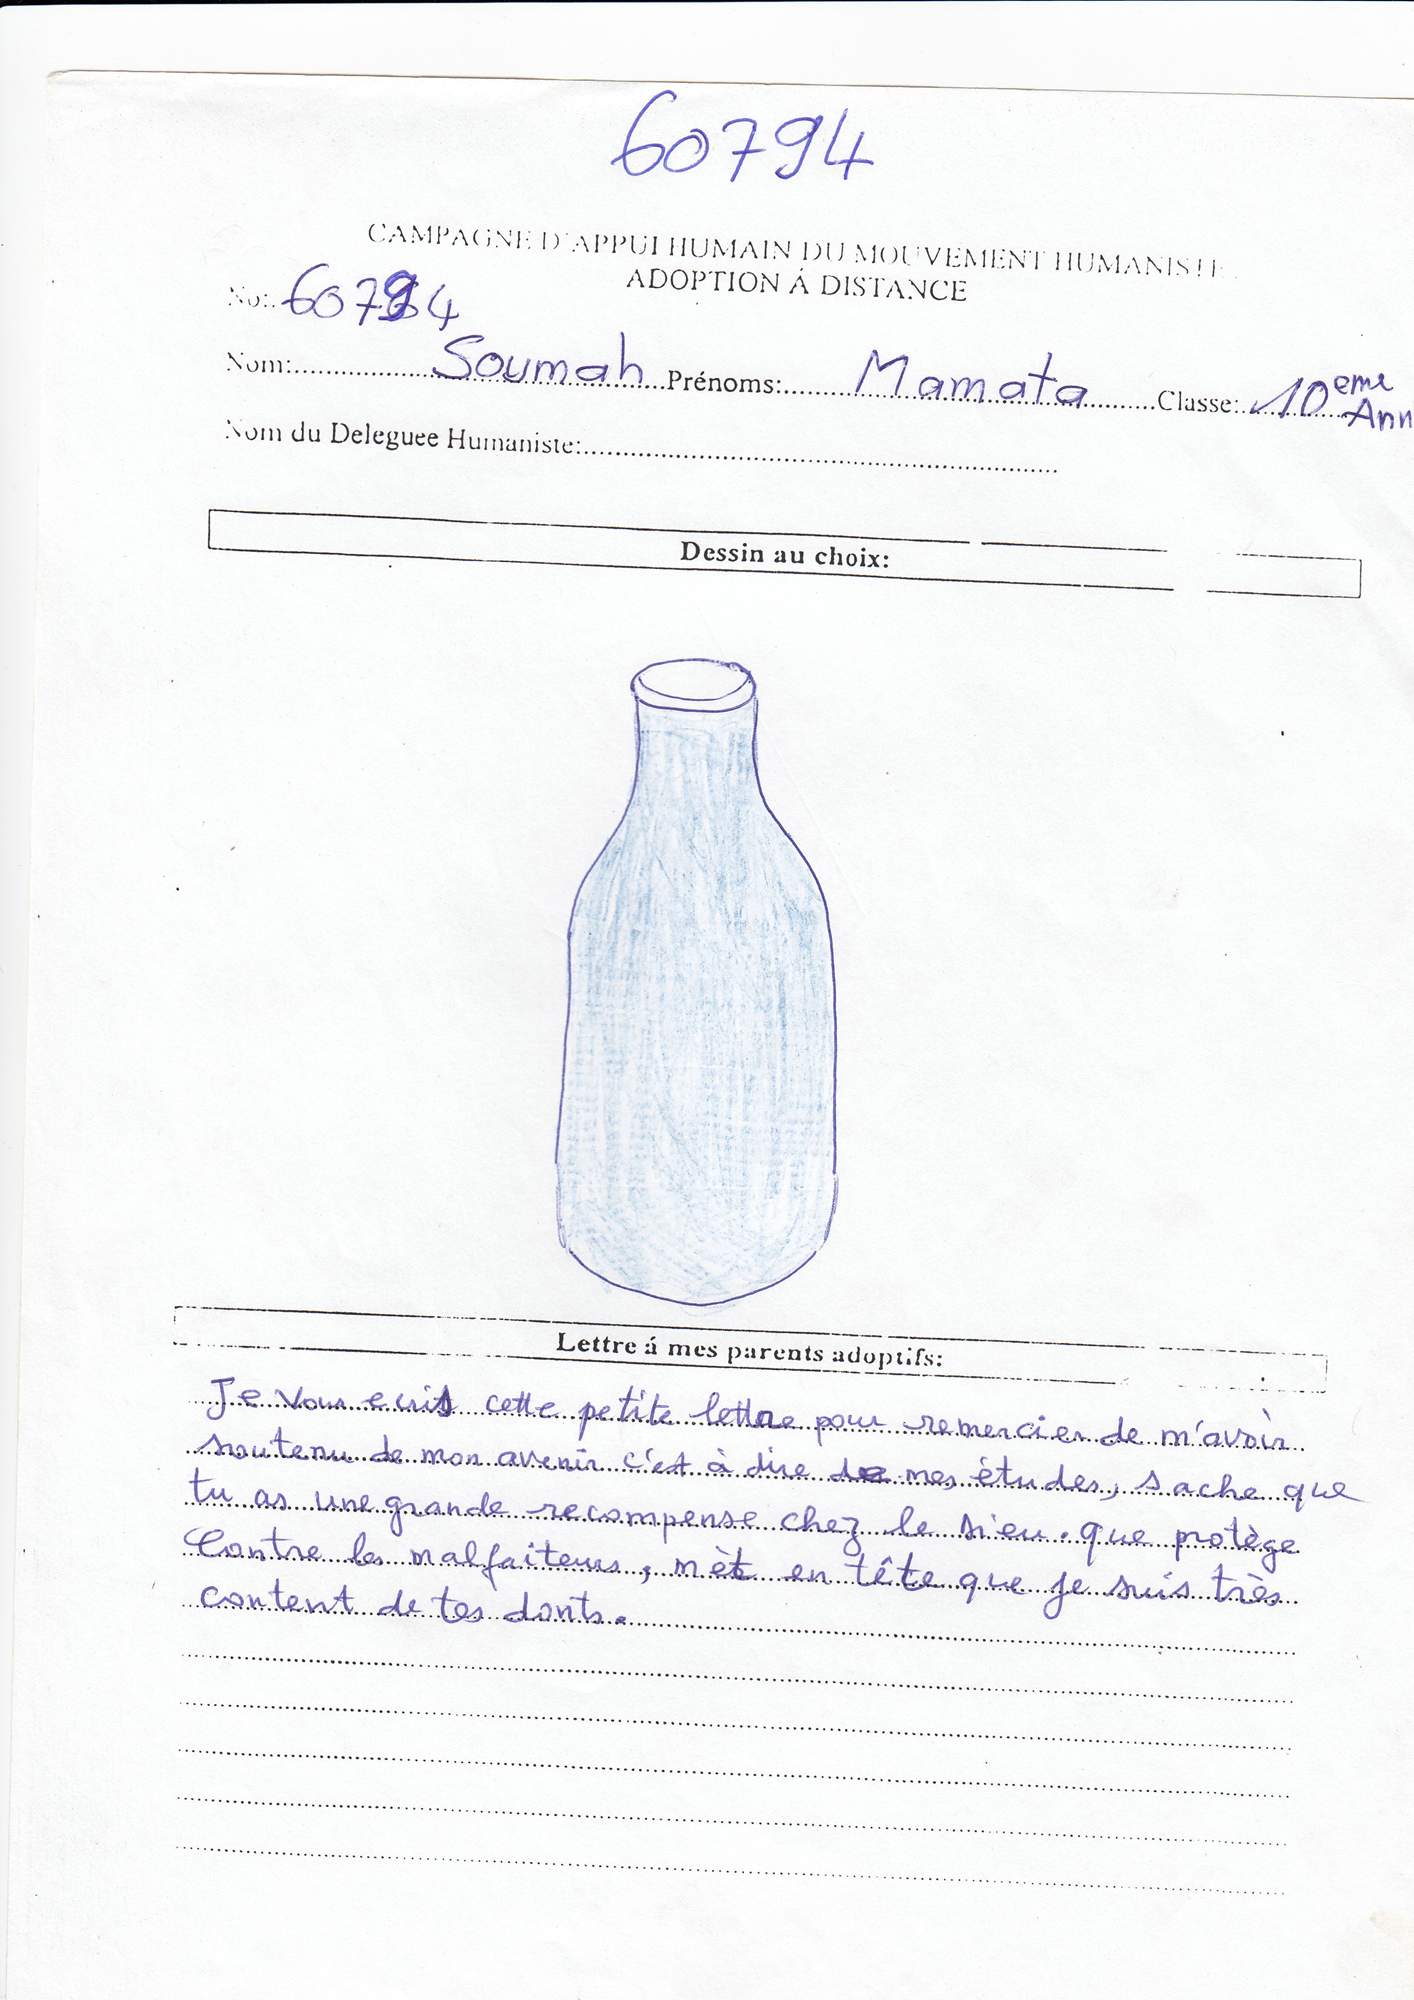 60794
CAMPAGNE D'APPUI HUMAIN DU MOUVEMENT HUMANISTE
ADOPTION Á DISTANCE
No:. 60794
Nom:..................Soumah..Prénoms:......Mamata.......Classe:..10eme Ann
Nom du Deleguee Humaniste:............................................................
Dessin au choix:
Lettre á mes parents adoptifs:
Je vous ecris cette petite lettre pour remercier de m'avoir
soutenu de mon avenir c'est à dire de mes études, sache que
tu as une grande recompense chez le sieu. que protège
Contre les malfaiteurs, mèt en tête que je suis très
content de tes donts.